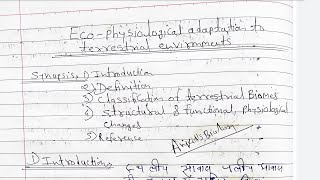 Eco-physiological adaptation to
terrestrial environments
Synopsis, 1) Introduction
2) Definition
3) Classification of terrestrial Biomes
4) Structural & functional, physiological
Changes
5) Reference
Biology
1) Introduction: